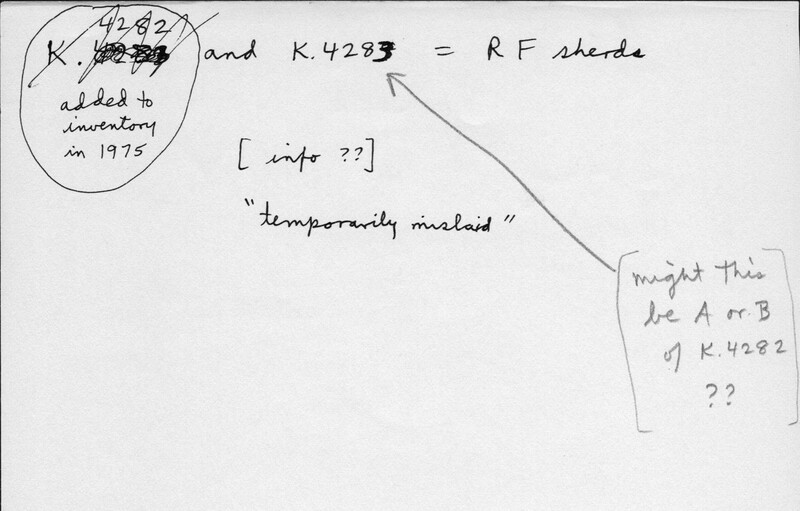 4282
K. and K.4283 = R F sherds
added to
inventory
in 1975
[ info ??]
"temporarily mislaid"
[might this
be A or B
of K.4282
??]